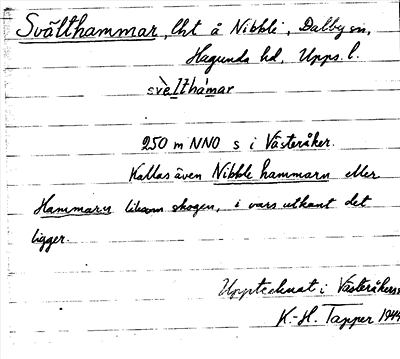 Svälthammar, lht å Nibble, Dalby sn,
Hagunda hd, Upps. l.
svèlthámar
250 m NNO s i Västeråker.
Kallas även Nibble hammarn eller
Hammarn liksom skogen, i vars utkant det
ligger.
Upptecknat i Västeråkers
K.-H. Tapper 1944